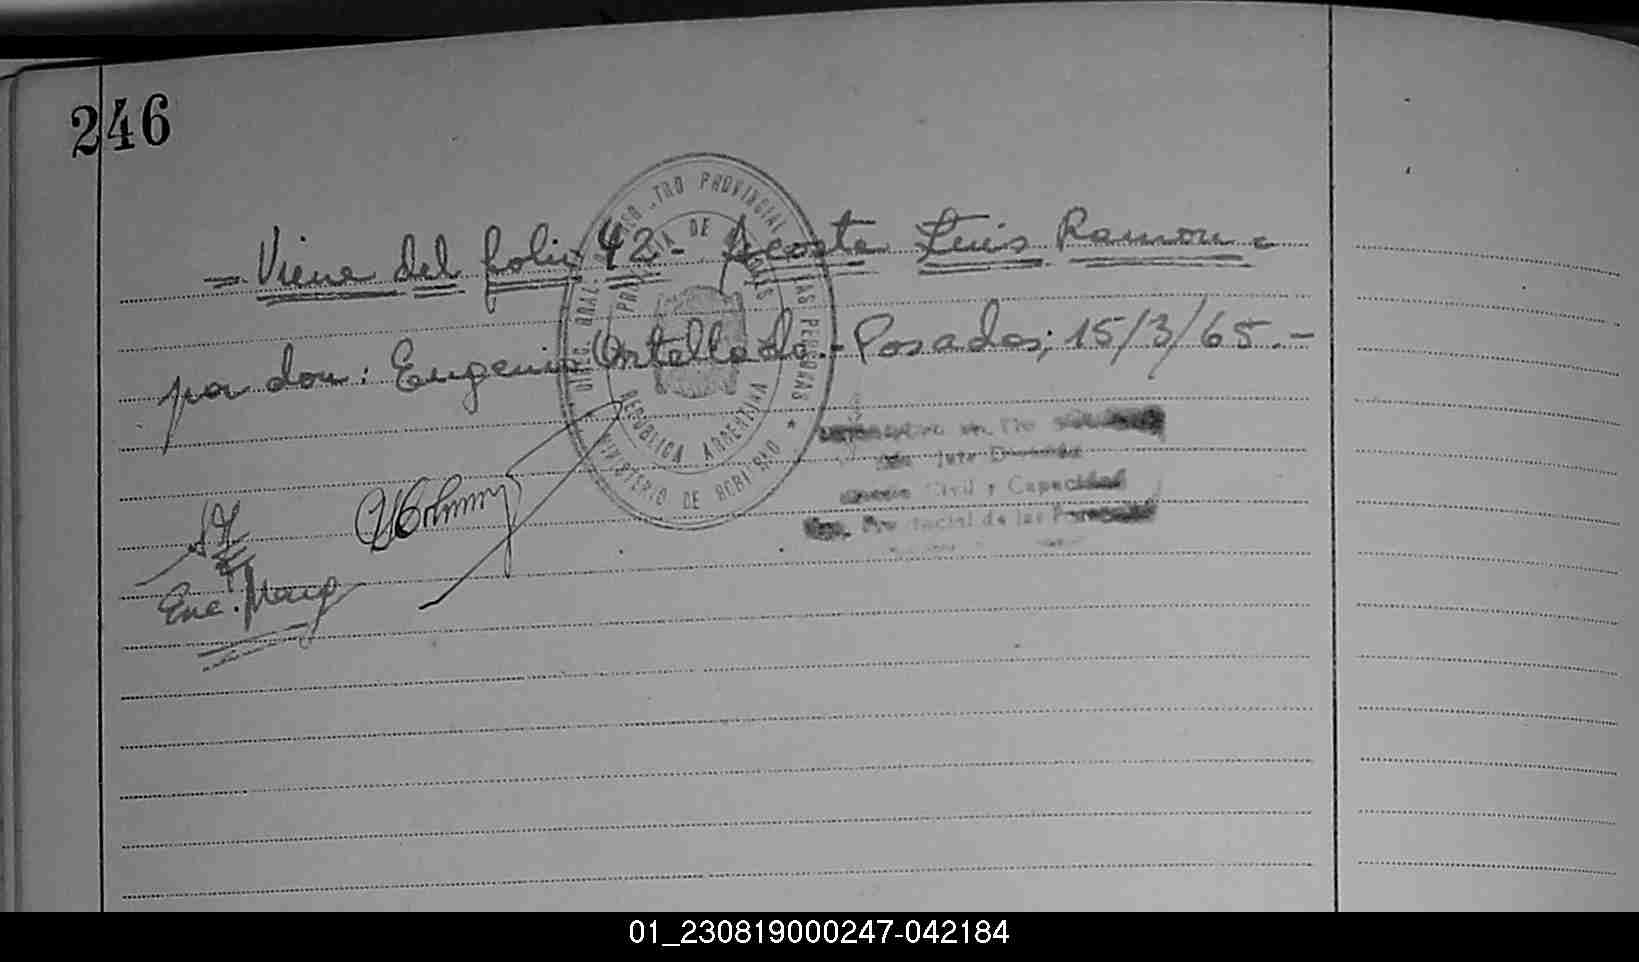 246
=.Viene del folio 42- Acosta Luis Ramon =
por don: Eugenio Ortellado.- Posadas; 15/3/65.-
DIREC. GRAL. REGISTRO PROVINCIAL DE LAS PERSONAS
MINISTERIO DE GOBIERNO
PROVINCIA DE MISIONES
REPUBLICA ARGENTINA
Civil y Capacidad
Provincial de las Personas
Enc.
01_230819000247-042184